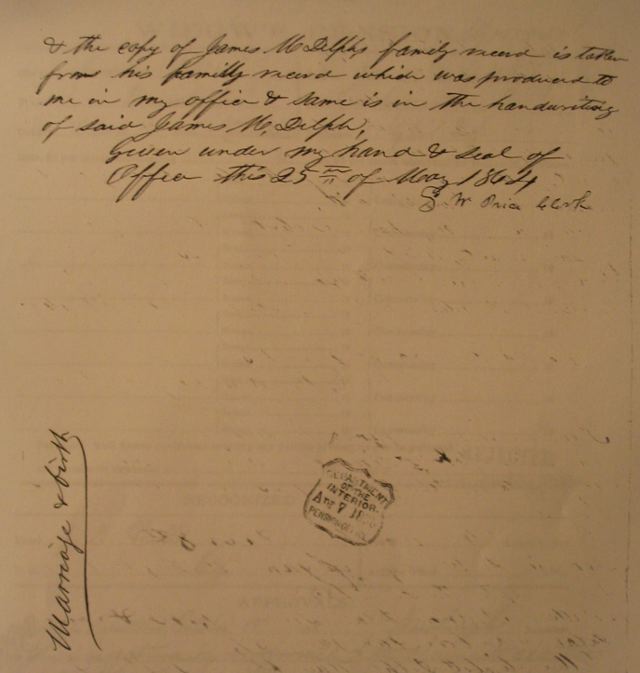 & the copy of James M Delphs family record is taken
from his family record which was produced to
me in my office & same is in the handwriting
of said James M, Delph,
Given under my hand & seal of
Office this 25th of May 1864
G W Price Clerk
DEPARTMENT
OF THE
INTERIOR
APR 7
PENSION OFFICE
Marriage & birth